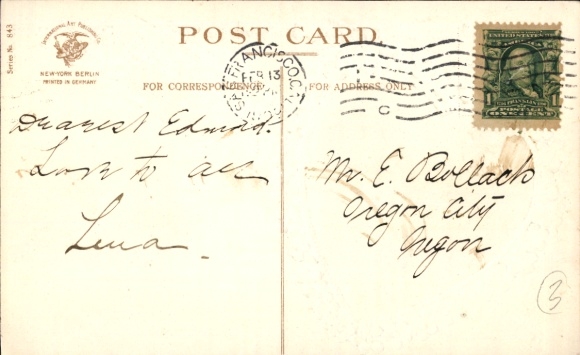 Series No. 843
International Art Publishing Co.
NEW-YORK BERLIN
PRINTED IN GERMANY
POST CARD
FOR CORRESPONDENCE
FOR ADDRESS ONLY
SAN FRANCISCO, CAL.
FEB 13
C
UNITED STATES
OF AMERICA
1 FRANKLIN 1
POSTAGE
ONE CENT
Dearest Edmund.
Love to all
Lena
Mr. E. Bollack
Oregon City
Oregon
3